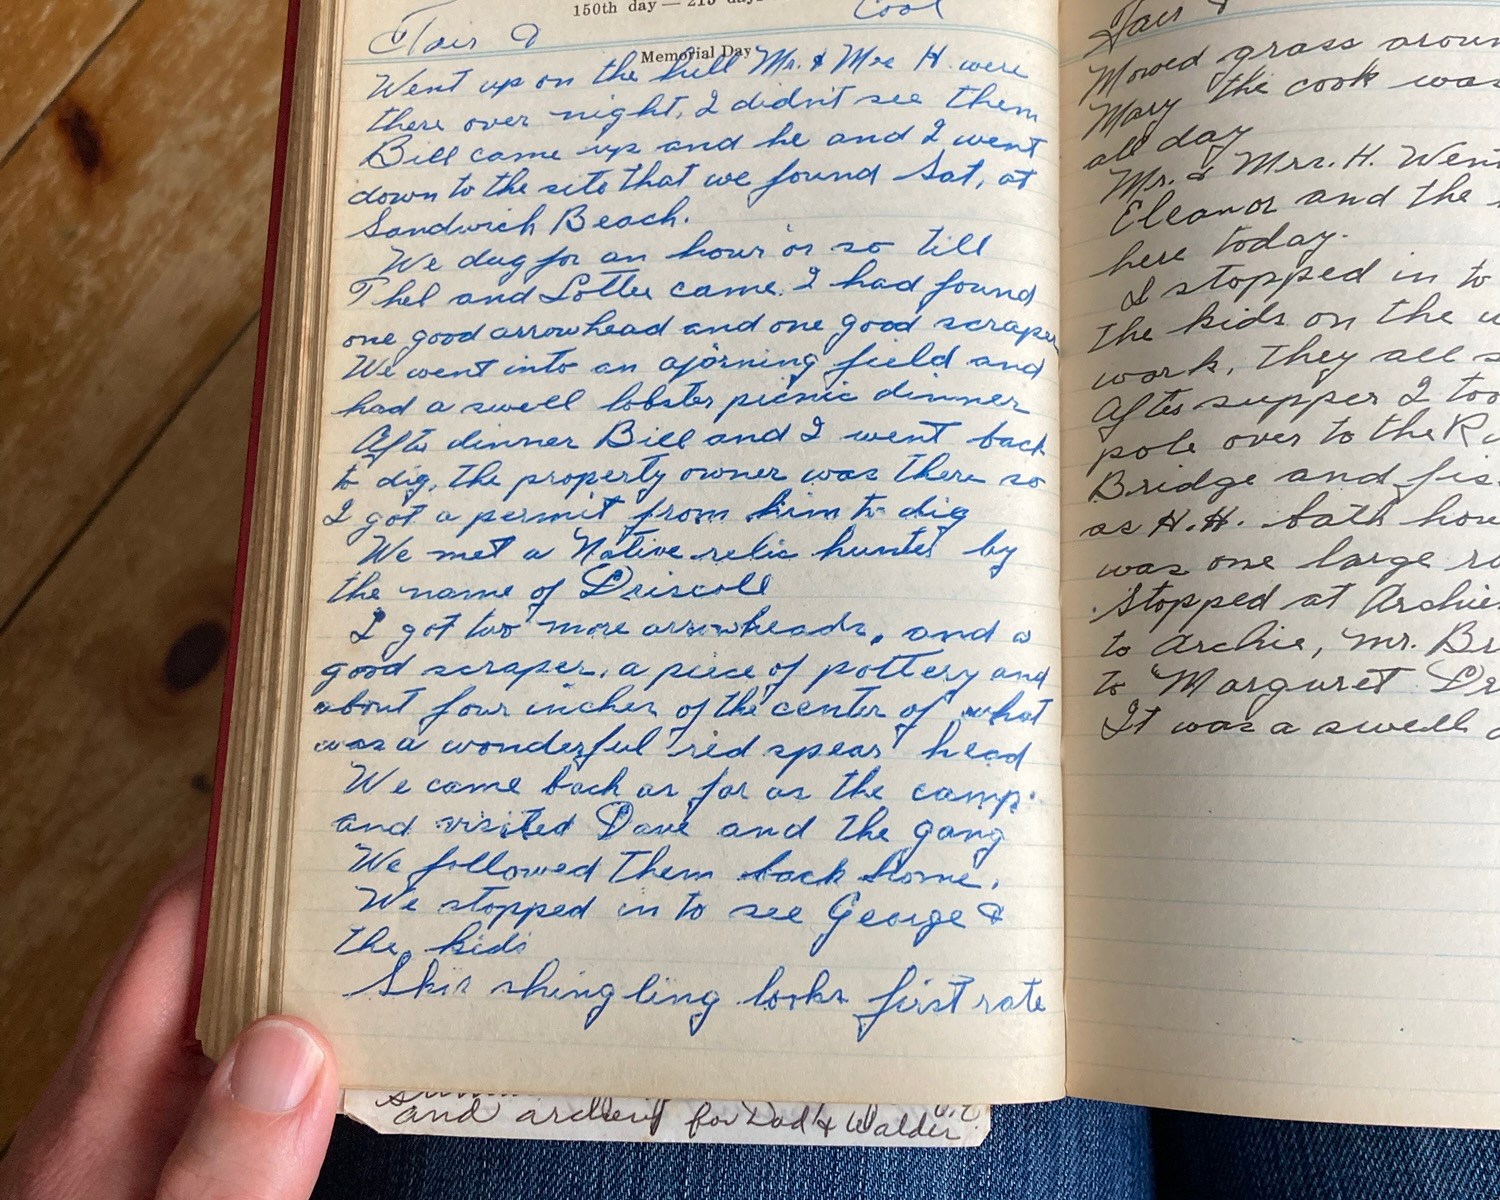 150th day — 215 days
Cool
Fair &
Memorial Day
Went up on the hill Mr. & Mrs H. were
there over night, I didn't see them
Bill came up and he and I went
down to the site that we found Sat, at
Sandwich Beach.
We dug for an hour or so till
Thel and Lottie came. I had found
one good arrowhead and one good scraper
We went into an ajorning field and
had a swell lobster picnic dinner
After dinner Bill and I went back
to dig, the property owner was there so
I got a permit from him to dig
We met a Native relic hunter by
the name of Driscoll
I got two more arrowheads, and a
good scraper, a piece of pottery and
about four inches of the center of what
was a wonderful red spear head
We came back as far as the camp
and visited Dave and the gang
We followed them back home.
We stopped in to see George &
the kids
Skis shingling looks first rate
and for Dad & Walder
Fair &
Mowed grass aroun
Mary the cook was
all day
Mr. & Mrs. H. Went
Eleanor and the
here today.
I stopped in to
the kids on the w
work, they all s
After supper I too
pole over to the
Bridge and fis
as H.H. bath hou
was one large ro
Stopped at Archie
to Archie, Mr. Br
to "Marguret Dr
It was a swell